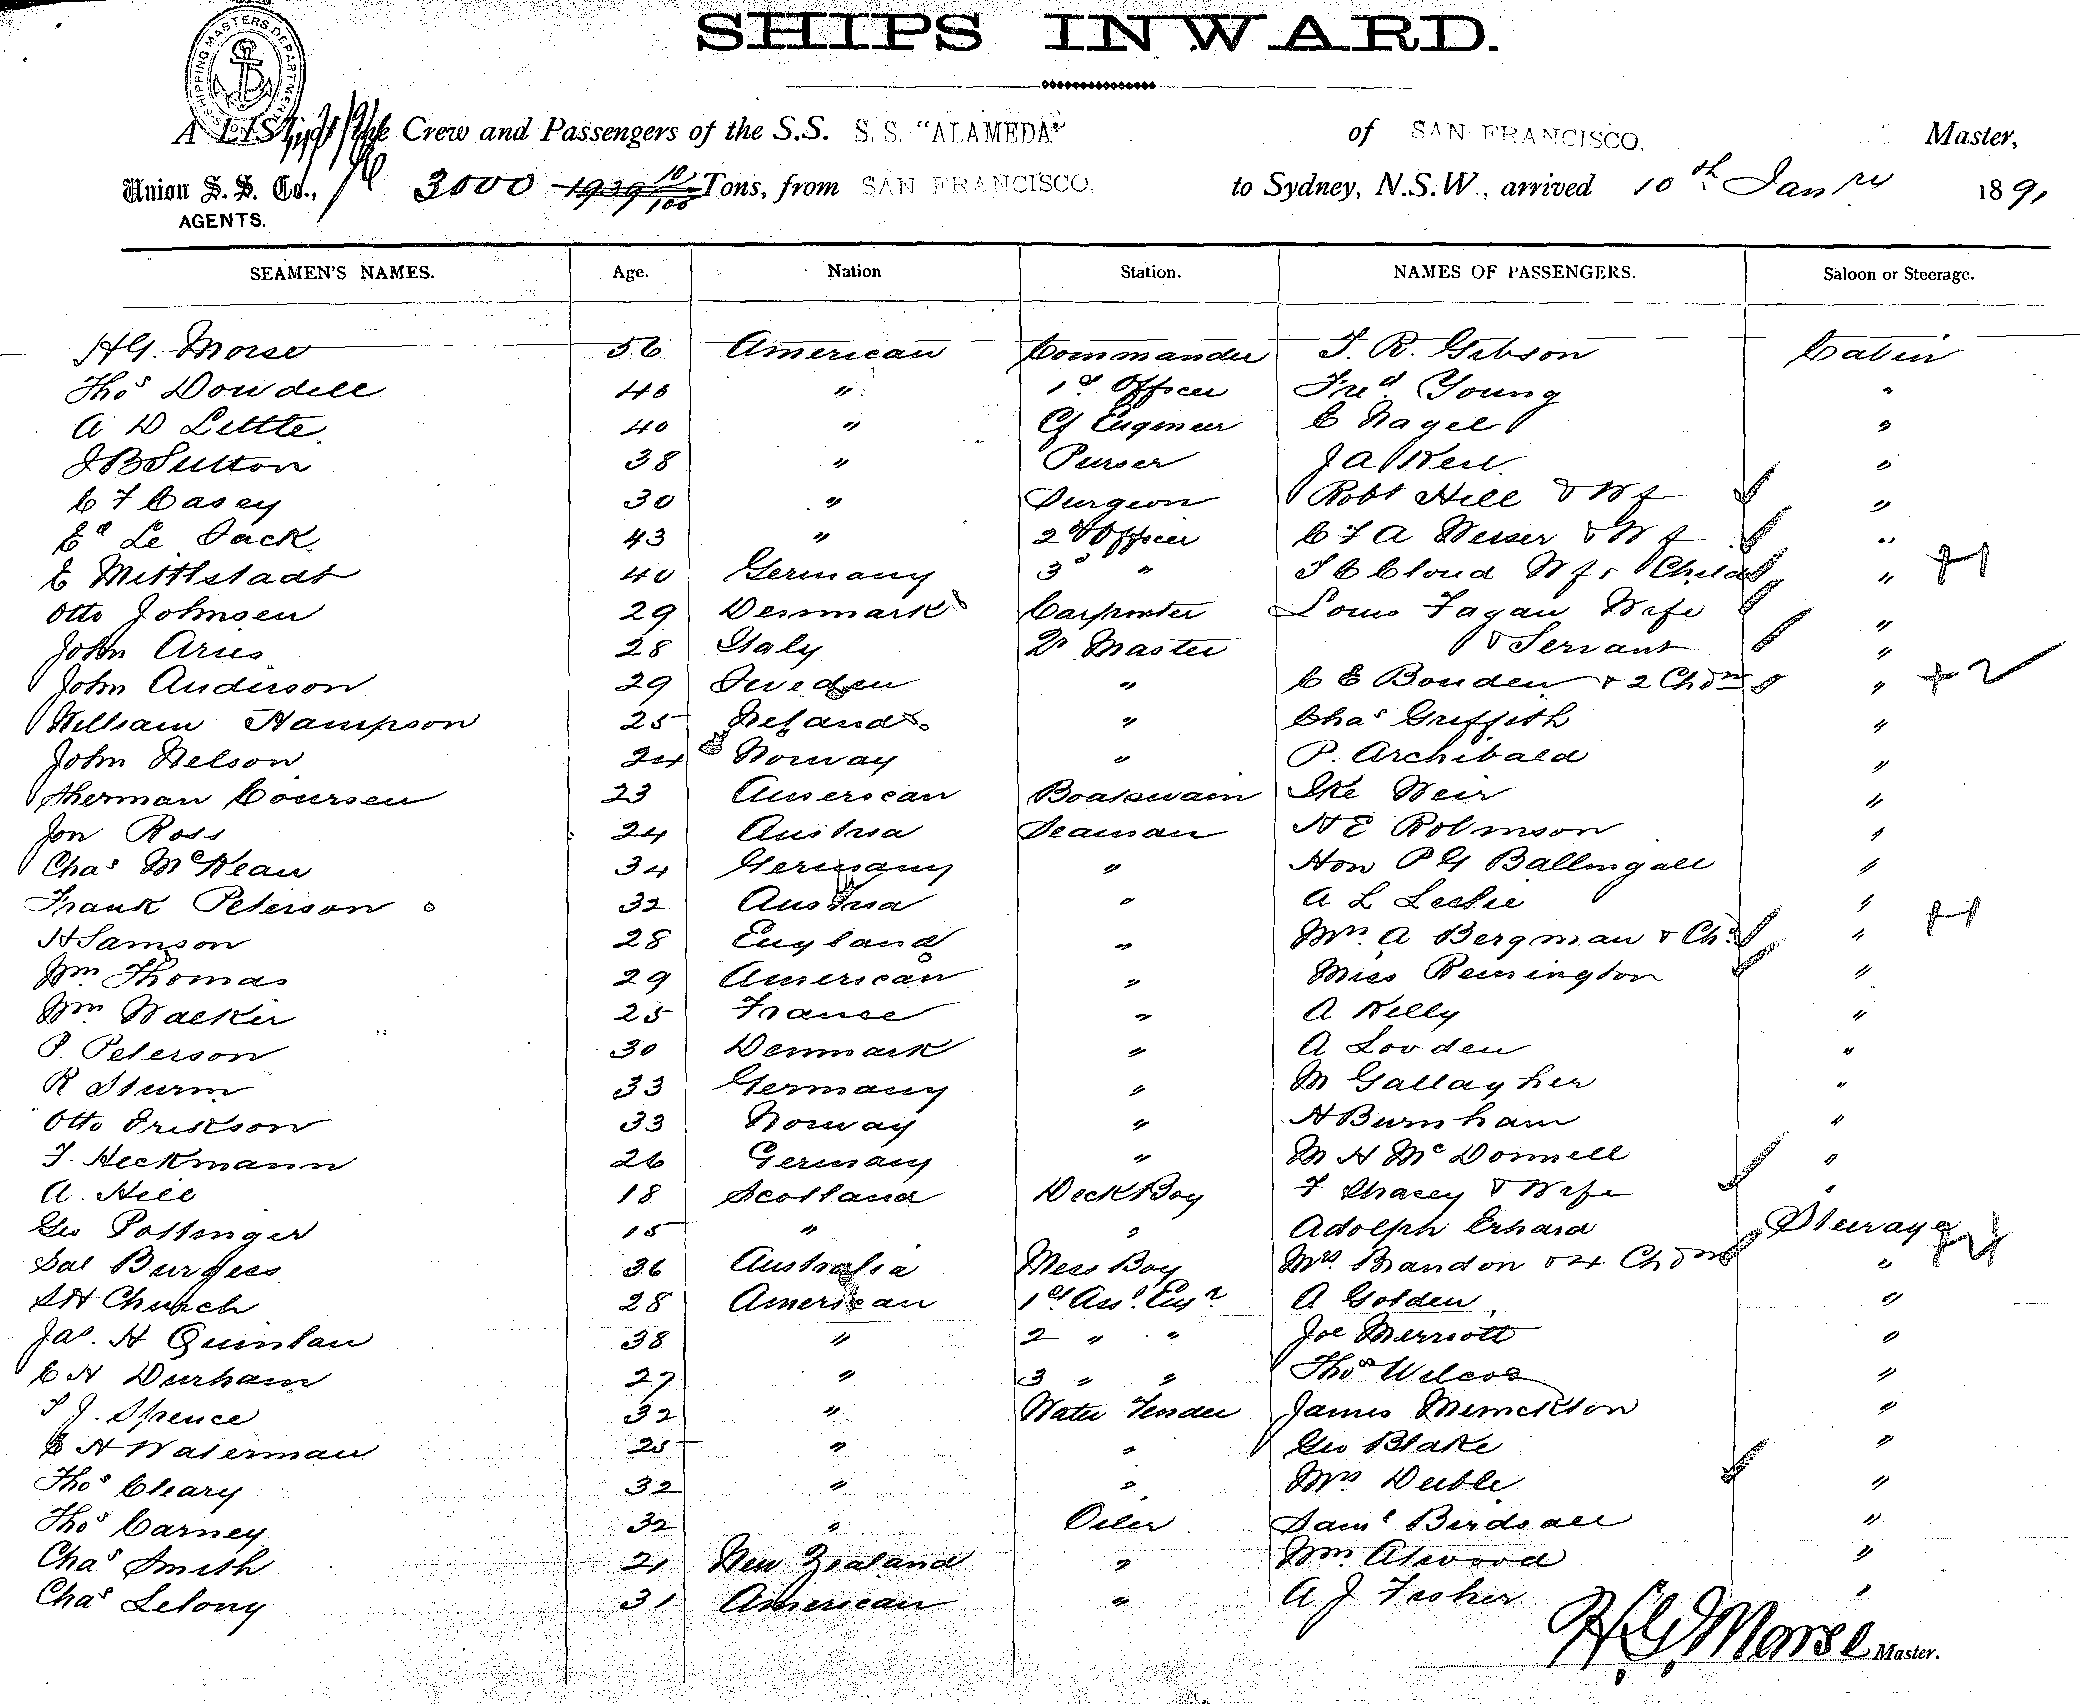 SHIPS INWARD.
SHIPPING MASTERS DEPARTMENT
A LIST of the Crew and Passengers of the S.S. S.S. "ALAMEDA" of SAN FRANCISCO. Master,
Union S. S. Co., 3000 1939 10/100 Tons, from SAN FRANCISCO. to Sydney, N.S.W., arrived 10th Jany 1891
AGENTS.
SEAMEN'S NAMES. Age. Nation Station. NAMES OF PASSENGERS. Saloon or Steerage.
HG. Morse 56 American Commander T. R. Gibson Cabin
Thos Dowdell 40 " 1st Officer Fred Young "
A D Little 40 " Cf Engineer C Nagel "
J B Sutton 38 " Purser J A Keil "
C F Casey 30 " Surgeon Robt Hill & Wf "
Ed Le Sack 43 " 2d Officer C F A Weiser & Wf "
E Mittlstadt 40 Germany 3d " S C Cloud Wf & Child " +1
Otto Johnsen 29 Denmark Carpenter Louis Fagan Wife "
John Aries 28 Italy Qr Master & Servant "
John Anderson 29 Sweden " C E Bouden & 2 Chdn " +2
William Hampson 25 Ireland " Chas Griffith "
John Nelson 24 Norway " P. Archibald "
Sherman Coursen 23 American Boatswain Ike Weir "
Jon Ross 24 Austria Seaman H E Robinson "
Chas McKeau 34 Germany " Hon P G Ballingall "
Frank Peterson 32 Austria " A L Leslie "
H Samson 28 England " Mrs. A Bergman & Chd " +1
Wm Thomas 29 American " Miss Remington "
Wm Walker 25 France " A Kelly "
P. Peterson 30 Denmark " A Louden "
R Sturm 33 Germany " M Gallagher "
Otto Erikson 33 Norway " H Burnham "
F. Heckmann 26 Germany " M H McDonnell "
A. Hill 18 Scotland Deck Boy F Chasey & Wife "
Geo Pottinger 15 " " Adolph Erhard Steerage
Sal Burgess 36 Australia Mess Boy Mrs Brandon & 4 Chdn " +4
S H Church 28 American 1st Asst. Engr A Golden "
Jas. H Quinlan 38 " 2 " " Joe Merriott "
C H Durham 27 " 3 " " Thos Wilcox "
T J. Spence 32 " Water Tender James "
E H Waterman 25 " " Geo Blake "
Thos Cleary 32 " " Mrs Deible "
Thos Carney 32 " Oiler Saml Birdsall "
Chas Smith 21 New Zealand " Wm Atwood "
Chas Lelony 31 American " A J Fisher "
HG Morse Master.